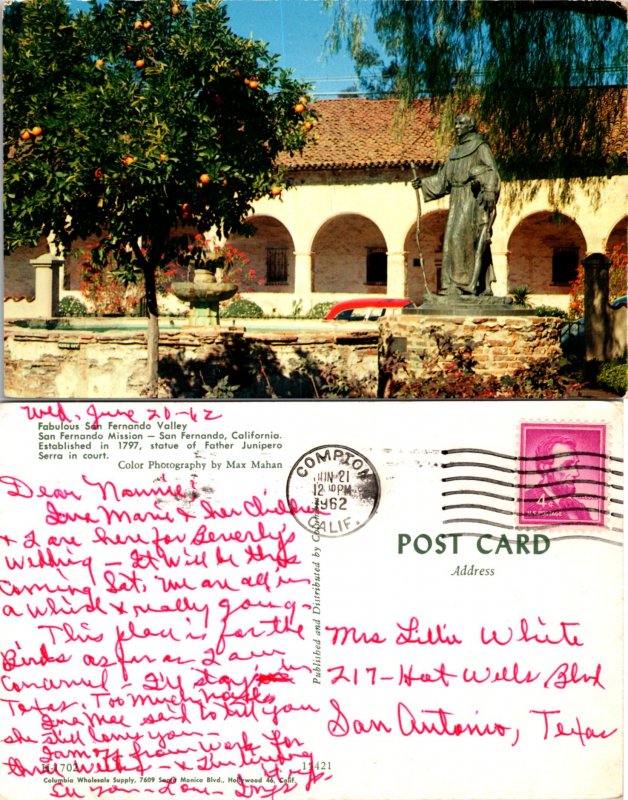 Wed. June 20-62
Fabulous San Fernando Valley
San Fernando Mission — San Fernando, California.
Established in 1797, statue of Father Junipero
Serra in court.
Color Photography by Max Mahan
COMPTON
JUN 21
12 PM
1962
CALIF.
4¢
U.S. POSTAGE
Dear Nannie:
Marie & her Children
& I are here for Beverly's
Wedding — It will be this
coming Sat, We are all in
a whirl & really going-
This place is for the
Birds as far as I am
concerned — I'll stay in
Texas. Too much
Ina Mae said to tell you
she still loves you—
I am off from work for
three weeks — &
POST CARD
Address
Mrs Lillie White
217-Hot Wells Blvd
San Antonio, Texas
Published and Distributed by Columbia
K-1702
11421
Columbia Wholesale Supply, 7609 Santa Monica Blvd., Hollywood 46, Calif.